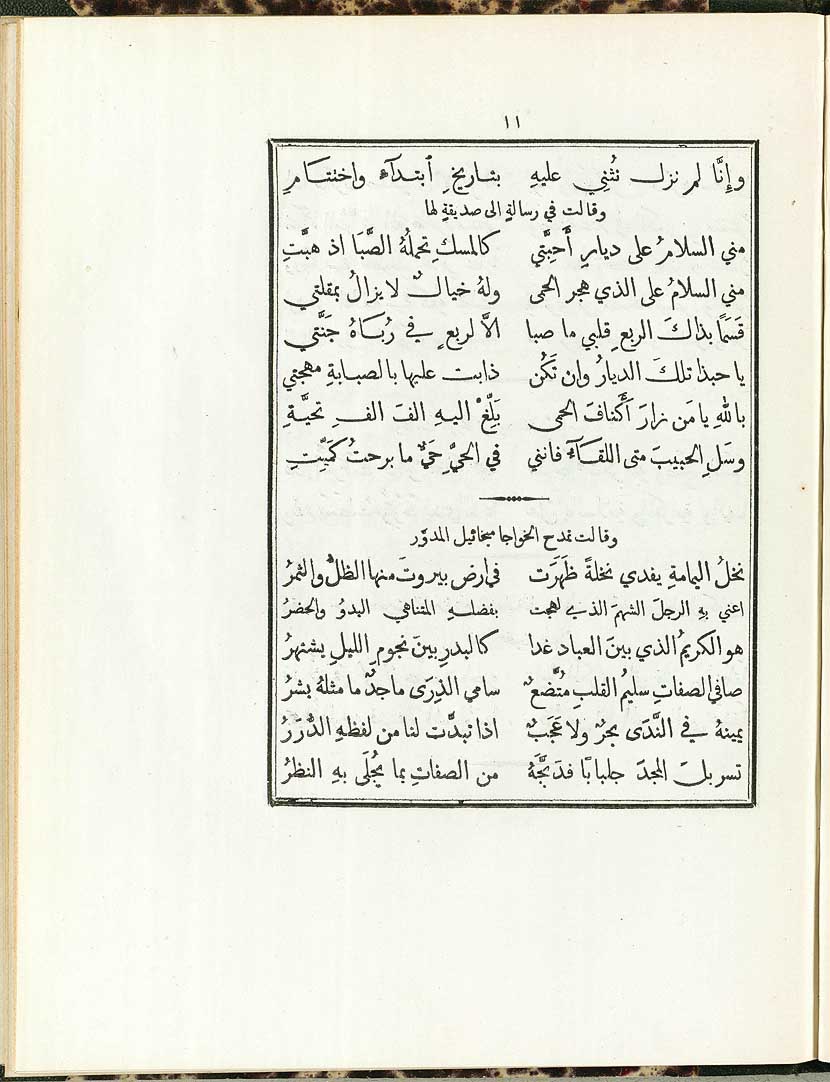 ١١
وإِنَّا لم نزل نُثني عليهِ بتاريخِ ٱبتدآءٍ واختتامِ
وقالت في رسالةٍ الى صديقةٍ لها
مني السلامُ على ديارِ أَحِبَّتي كالمسكِ تحملهُ الصَّبَا اذ هبَّتِ
مني السلامُ على الذي هجر الحمى ولهُ خيالٌ لا يزالُ بمقلتي
قَسَمًا بذاكَ الربعِ قلبي ما صبا الاَّ لربعٍ في رُبَاهُ جَنَّتي
يا حبذا تلكَ الديارُ وان تَكُن ذابت عليها بالصبابةِ مهجتي
باللهِ يا مَن زارَ أَكنافَ الحمى بَلِّغْ اليهِ الفَ الفِ تحيَّةِ
وسَلِ الحبيبَ متى اللقآءُ فانني في الحيِّ حَيٌّ ما برحتُ كمَيِّتِ
وقالت تمدح الخواجا ميخائيل المدوَّر
نخلُ اليمامةِ يفدي نخلةً ظَهَرَت في ارض بيروتَ منها الظلُّ والثمرُ
اعني بهِ الرجلَ الشهمَ الذي لهجت بفضلهِ المتناهي البدوُ والحضرُ
هو الكريمُ الذي بينَ العباد غدا كالبدرِ بينَ نجومِ الليلِ يشتهرُ
صافي الصفاتِ سليمُ القلبِ مُتَّضعٌ سامي الذِرَى ماجدٌ ما مثلهُ بشرُ
يمينهُ في النَّدَى بحرٌ ولا عَجَبٌ اذا تبدَّت لنا من لفظهِ الدُّرَرُ
تسربلَ المجدَ جلبابًا فدَبَّجَهُ من الصفاتِ بما يُجلَى بهِ النظرُ